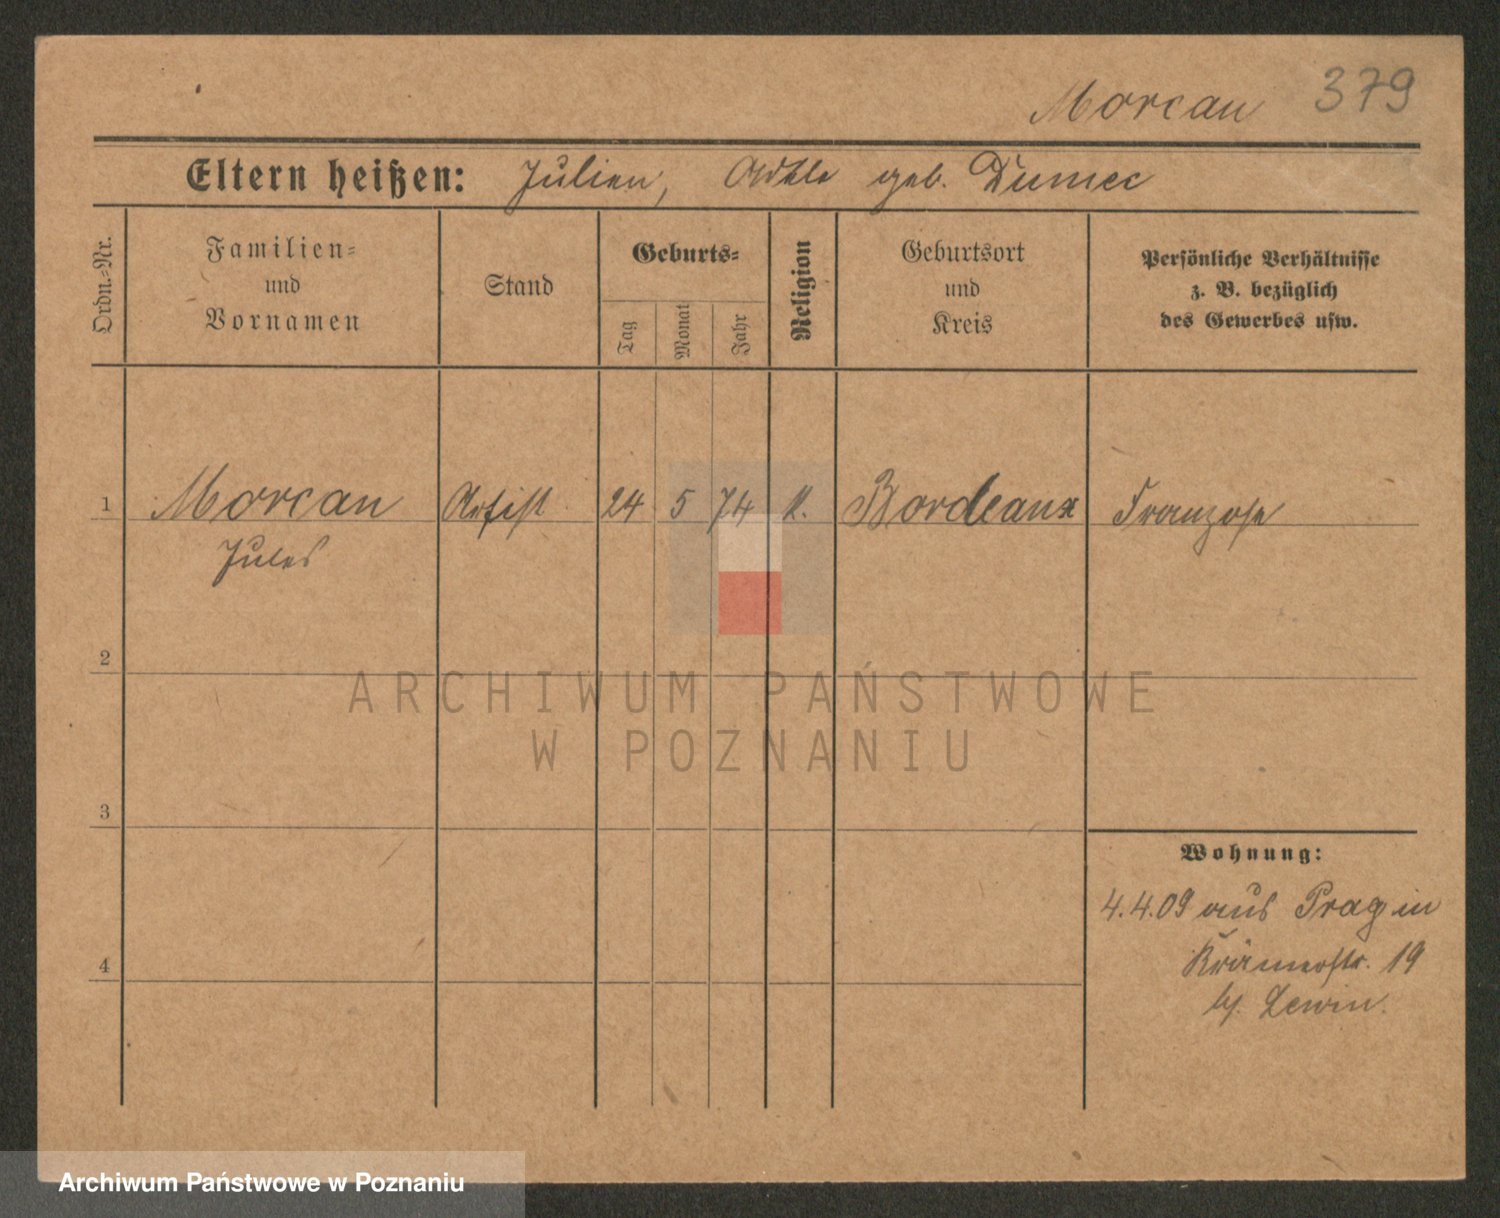 Morcan 379
Eltern heißen: Julien, geb. Dumec
Ordn.-Nr.
Familien-
und
Vornamen
Stand
Geburts-
Tag
Monat
Jahr
Religion
Geburtsort
und
Kreis
Persönliche Verhältnisse
z. B. bezüglich
des Gewerbes usw.
1 Morcan Artist 24 5 74 K. Bordeaux Franzose
Jules
2
ARCHIWUM PAŃSTWOWE
W POZNANIU
3
Wohnung:
4.4.09 aus Prag in
4 Krämerstr. 19
bei Lewin.
Archiwum Państwowe w Poznaniu